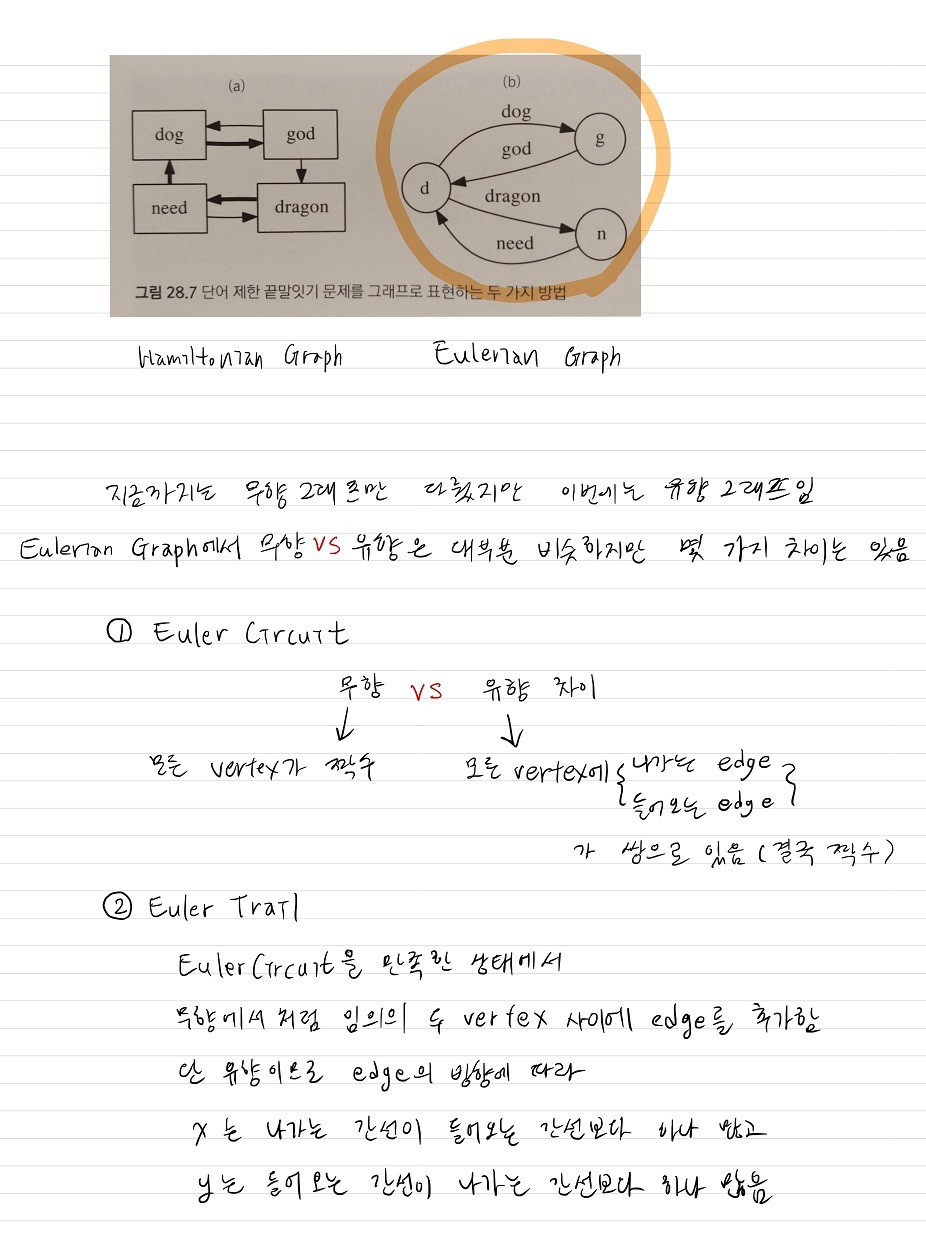 (a)
(b)
dog
god
need
dragon
dog
god
dragon
need
d
g
n
그림 28.7 단어 제한 끝말잇기 문제를 그래프로 표현하는 두 가지 방법
Hamiltonian Graph
Eulerian Graph
지금까지는 무향 그래프만 다뤘지만 이번에는 유향 그래프임
Eulerian Graph에서 무향 VS 유향은 대부분 비슷하지만 몇 가지 차이는 있음
① Euler Circuit
무향 VS 유향 차이
모든 vertex가 짝수
모든 vertex에 { 나가는 edge
들어오는 edge }
가 쌍으로 있음 (결국 짝수)
② Euler Trail
Euler Circuit을 만족한 상태에서
무향에서처럼 임의의 두 vertex 사이에 edge를 추가함
단 유향이므로 edge의 방향에 따라
x는 나가는 간선이 들어오는 간선보다 하나 많고
y는 들어오는 간선이 나가는 간선보다 하나 많음